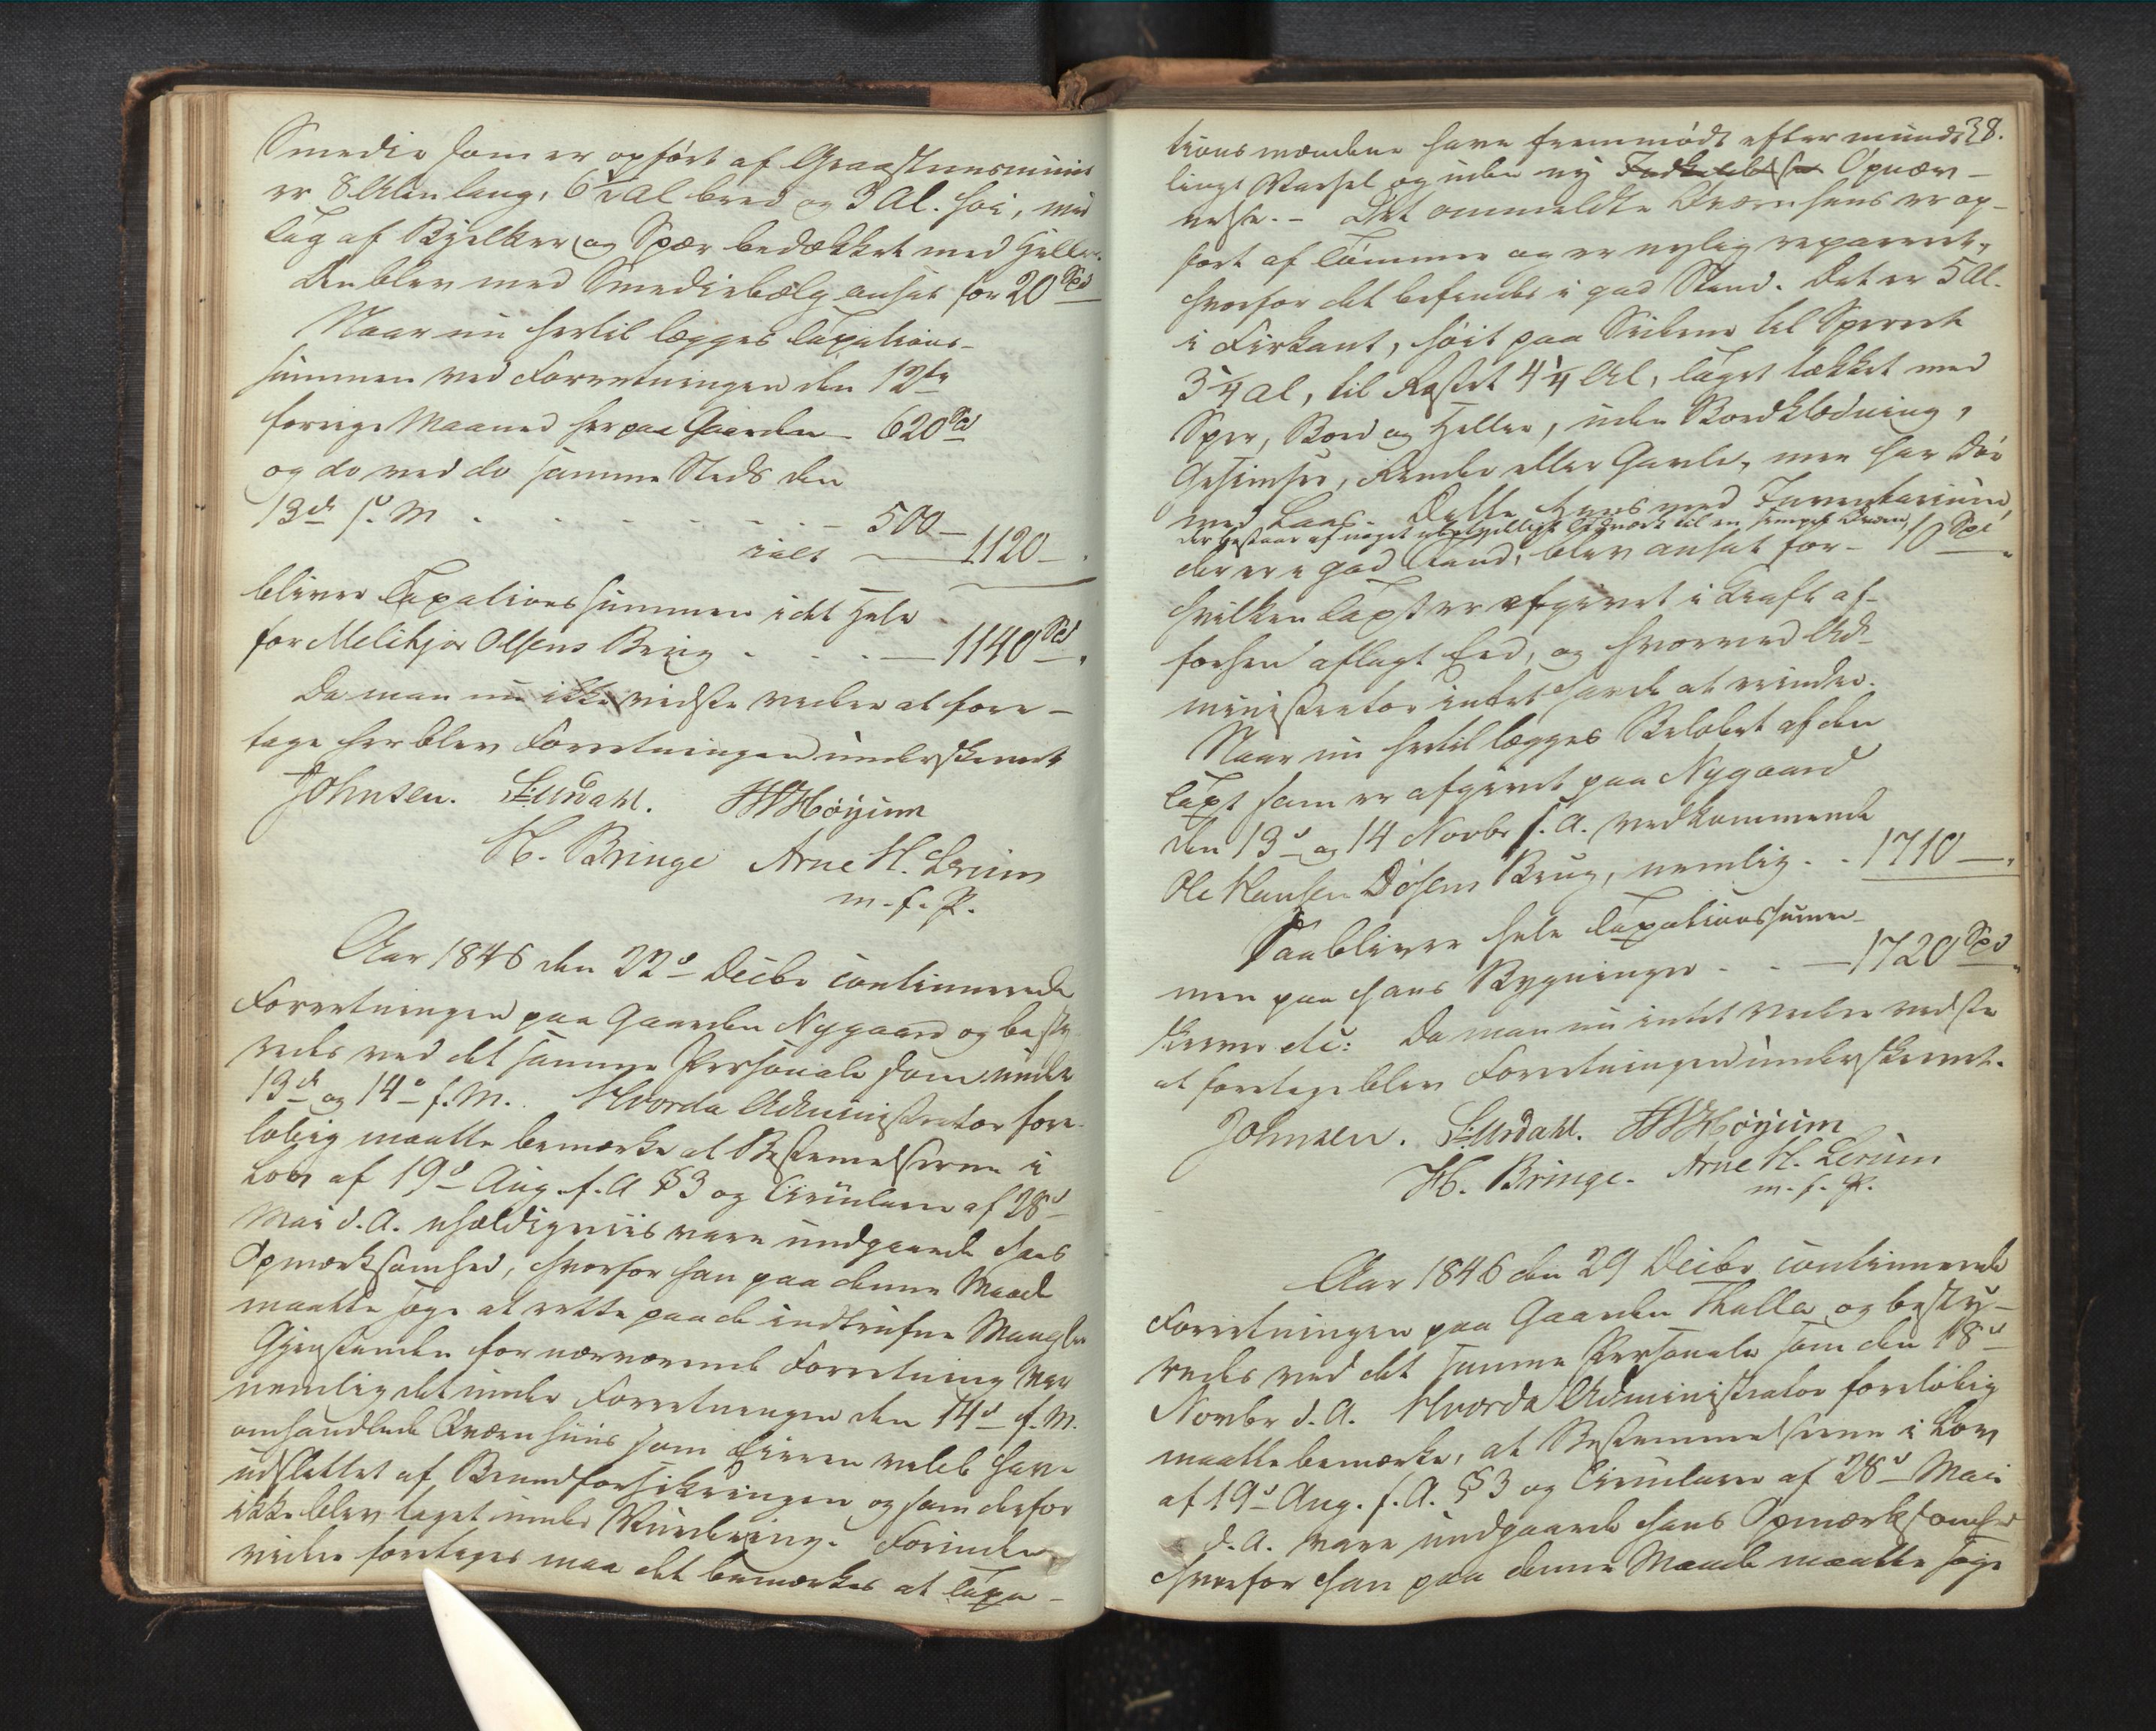 Smedie som er opført af Graasteensmuur
er 8 Alen lang, 6½ Al bred og 3 Al. høi, med
Tag af Bjelker og Spær bedækket med Heller.
Den blev med Smediebælg ansat for 20 Spd
Naar nu hertil lægges Taxations-
summen ved Forretningen den 12te
forrige Maaned her paa Gaarden - 620 Spd
og do ved do samme Steds den
13de f. M . . . . . . . - 500 -
ialt - 1120 - .
bliver Taxationssummen i det Hele
for Melchjor Olsens Brug . . . - 1140 Spd.
Da man nu ikke vidste videre at fore-
tage her blev Forretningen underskrevet
Johnsen. Urdahl. Høyum
H. Bringe Arne H. Lerum
m. f. P.
Aar 1846 den 22de Decbr continuerede
Forretningen paa Gaarden Nygaard og besty-
redes ved det samme Personale som under
13de og 14de f. M. Hvorda Administrator fore-
løbig maatte bemærke at Bestemmelserne i
Lov af 19de Aug. f. A § 3 og Circulære af 28de
Mai d. A. uheldigviis vare undgaaede hans
Opmærksomhed, hvorfor han paa denne Maade
maatte søge at rette paa de indtrufne Mangler
Gjenstanden for nærværende Forretning var
nemlig det under Forretningen den 14de f. M.
omhandlede Qværnhuus som Eieren vilde have
udslettet af Brandforsikringen og som derfor
ikke blev taget under Vurdering. Forinden
videre foretages maa det bemærkes at Taxa-
38.
tionsmændene have fremmødt efter mundt-
ligt Varsel og uden ny Opnæv-
nelse. - Det ommeldte Qværnhuus er op-
ført af Tømmer og er nylig repareret,
hvorfor det befindes i god Stand. Det er 5 Al.
i Firkant, høit paa Siderne til Sperret
3¼ Al, til Røstet 4¼ Al, Taget tækket med
Sper, Bord og Heller, uden Bordklædning,
Gesimser, Render eller Gavle, men har Dør
med Laas. Dette Huus med Inventarium,
der bestaar af noget til en simpel Qværn,
der er i god Stand, blev ansat for - 10 Spd.
hvilken Taxt er afgivet i Kraft af
forhen aflagt Eed, og hvorved Ad-
ministrator intet havde at erindre.
Naar nu hertil lægges Beløbet af den
Taxt som er afgivet paa Nygaard
den 13de og 14 Novbr f. A. vedkommende
Ole Hansen Døsens Brug, nemlig . . 1710 - .
Saa bliver hele Taxationssum-
men paa hans Bygninger . . - 1720 Spd.
skriver etc: Da man nu intet videre vidste
at foretage blev Forretningen underskrevet.
Johnsen. Urdahl. Høyum
H. Bringe. Arne H. Lerum
m. f. P.
Aar 1846 den 29 Decbr continuerede
Forretningen paa Gaarden Thalla og besty-
redes ved det samme Personale som den 18de
Novbr d. A. Hvorda Administrator foreløbig
maatte bemærke, at Bestemmelserne i Lov
af 19de Aug. f. A. § 3 og Circulære af 28de Mai
d. A. vare undgaaede hans Opmærksomhed
hvorfor han paa denne Maade maatte søge